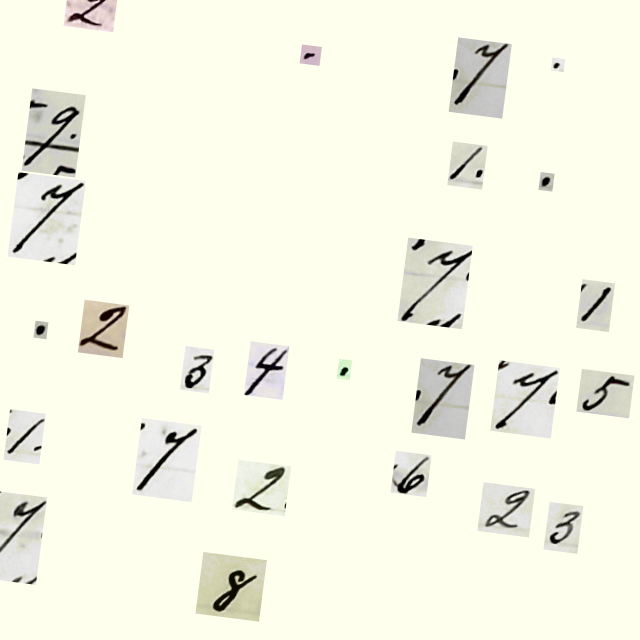 2
7 .
9.
1. .
7
7 1
. 2
3 4 . 7 7 5
1. 7 2 6
7 2 3
8